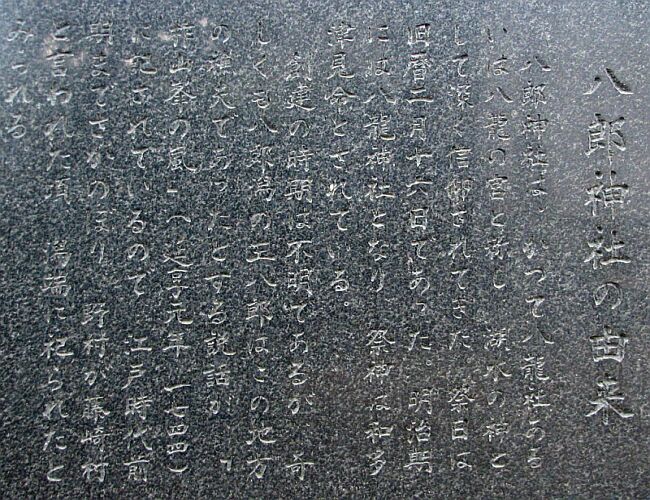 八郎神社の由来
八郎神社は、かつて八龍社ある
いは八龍の宮と称し 湖水の神と
して深く信仰されてきた 祭日は
旧暦二月十六日であった。明治期
には八龍神社となり 祭神は和多
常見命とされている。
創建の時期は不明であるが 奇
しくも八郎潟の王八郎はこの地方
の雄犬であったとする説話が「
作山峯の嵐」へ延享元年 一七四四)
に記されているので 江戸時代前
期までさかのぼり 野村が藤崎村
と言われた頃 潟端に祀られたと
みられる